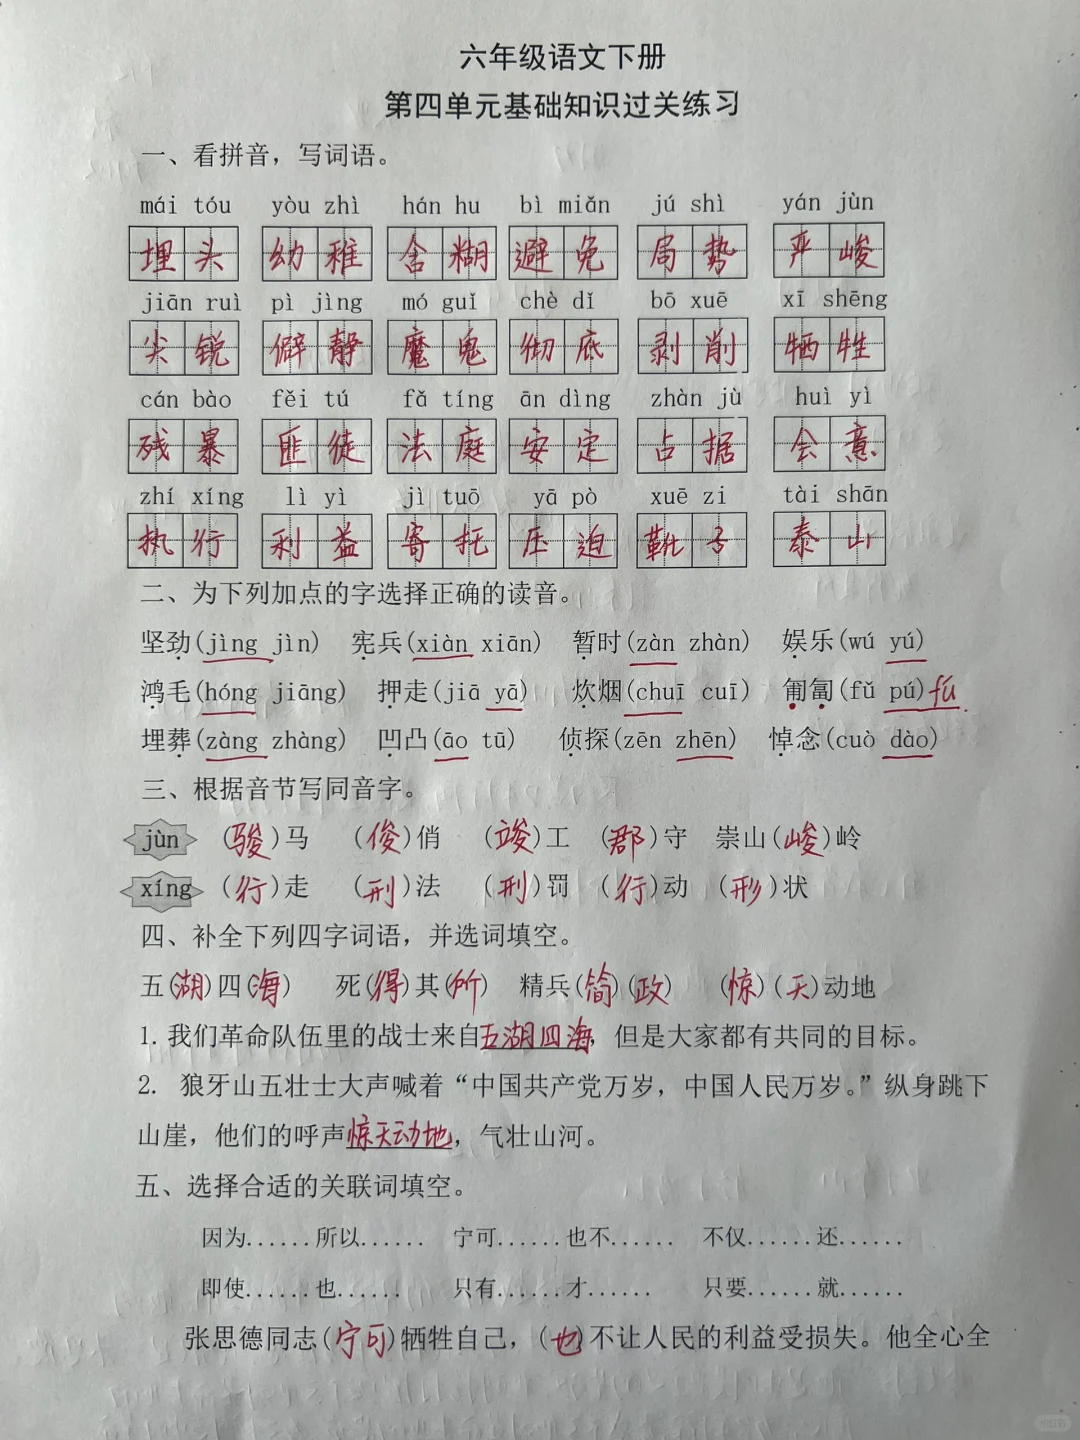 六年级语文下册
第四单元基础知识过关练习
一、看拼音，写词语。
mái tóu yòu zhì hán hu bì miǎn jú shì yán jùn
埋头 幼稚 含糊 避免 局势 严峻
jiān ruì pì jìng mó guǐ chè dǐ bō xuē xī shēng
尖锐 僻静 魔鬼 彻底 剥削 牺牲
cán bào fěi tú fǎ tíng ān dìng zhàn jù huì yì
残暴 匪徒 法庭 安定 占据 会意
zhí xíng lì yì jì tuō yā pò xuē zi tài shān
执行 利益 寄托 压迫 靴子 泰山
二、为下列加点的字选择正确的读音。
坚劲(jìng jìn) 宪兵(xiàn xiān) 暂时(zàn zhàn) 娱乐(wú yú)
鸿毛(hóng jiāng) 押走(jiā yā) 炊烟(chuī cuī) 匍匐(fǔ pú)fú
埋葬(zàng zhàng) 凹凸(āo tū) 侦探(zēn zhēn) 悼念(cuò dào)
三、根据音节写同音字。
jùn (骏)马 (俊)俏 (竣)工 (郡)守 崇山(峻)岭
xíng (行)走 (刑)法 (刑)罚 (行)动 (形)状
四、补全下列四字词语，并选词填空。
五(湖)四(海) 死(得)其(所) 精兵(简)(政) (惊)(天)动地
1. 我们革命队伍里的战士来自五湖四海，但是大家都有共同的目标。
2. 狼牙山五壮士大声喊着“中国共产党万岁，中国人民万岁。”纵身跳下
山崖，他们的呼声惊天动地，气壮山河。
五、选择合适的关联词填空。
因为......所以...... 宁可......也不...... 不仅......还......
即使......也...... 只有......才...... 只要......就......
张思德同志(宁可)牺牲自己，(也)不让人民的利益受损失。他全心全